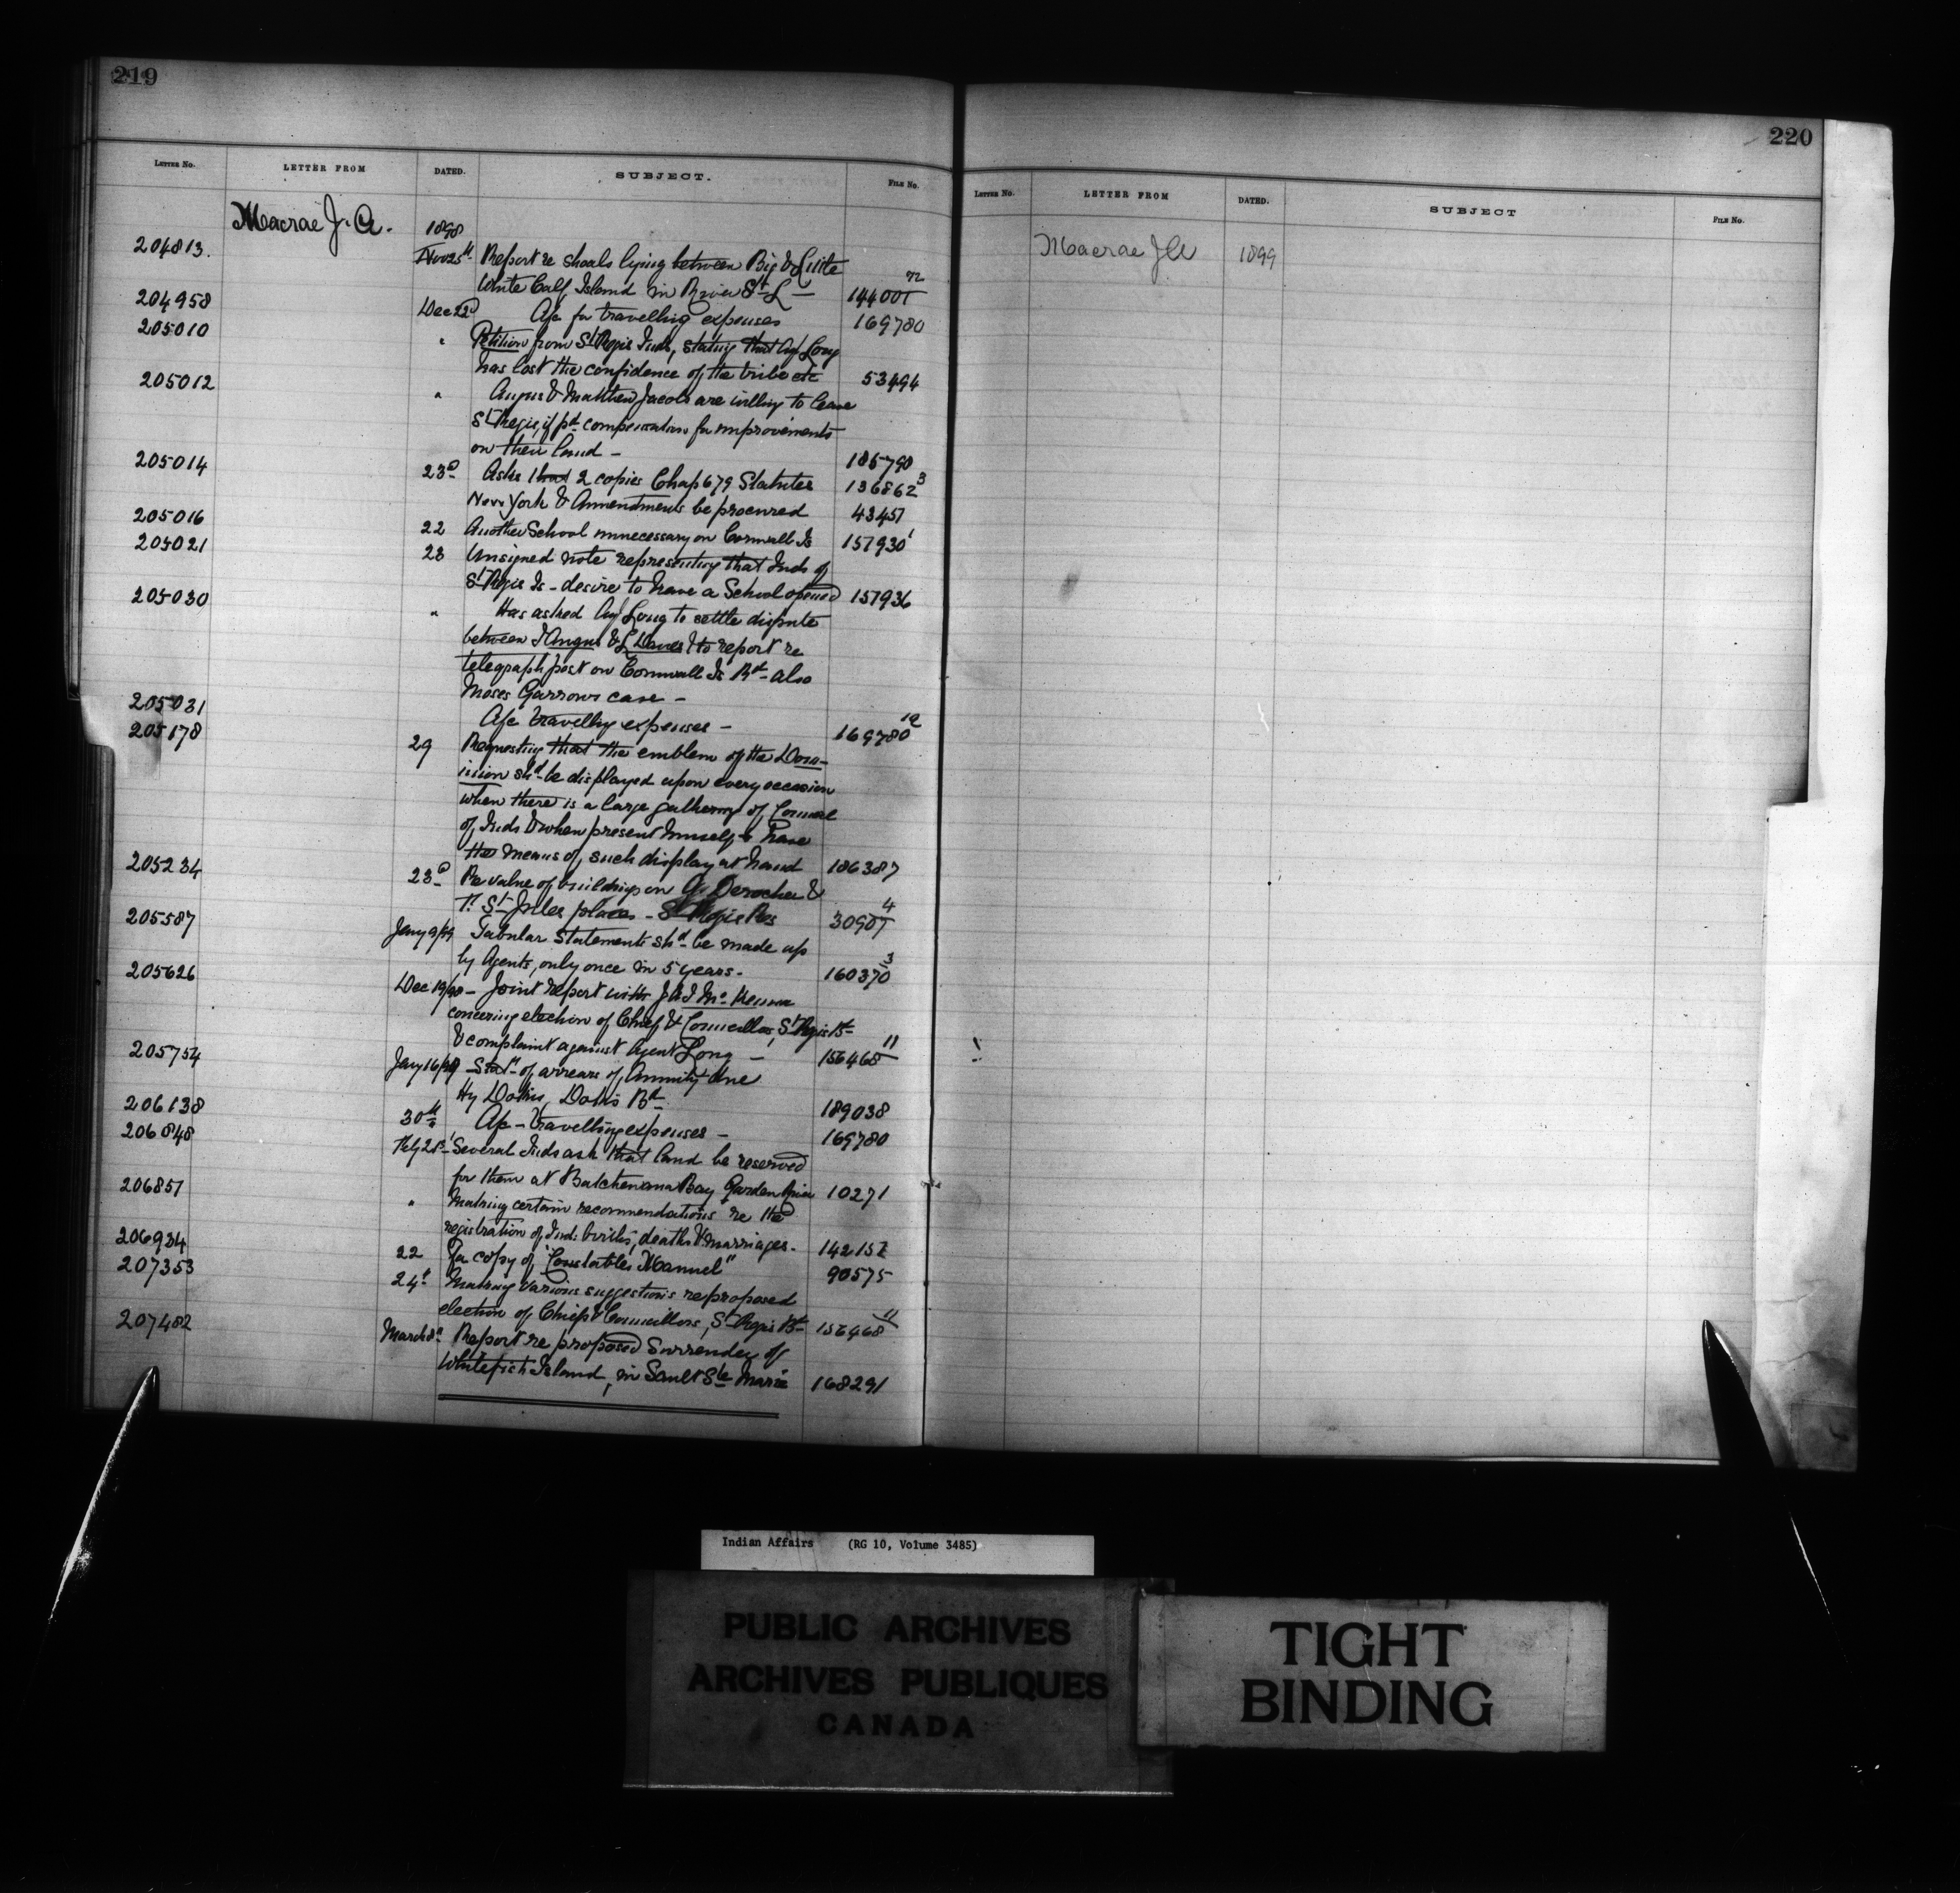 219
LETTER No. LETTER FROM DATED. SUBJECT. FILE No.
Macrae J. A. 1898
204813. Nov 25th Report re shoals lying between Big & Little
White Calf Island in River St. L — 144001
204958 Dec 22d A/c for travelling expenses 169780
205010 " Petition from St Regis Inds, stating that Agt Long
has lost the confidence of the tribe etc 53494
205012 " Angus & Matthew Jacobs are willing to leave
St Regis, if pd compensation for improvements
on their land — 185790
205014 23d Asks that 2 copies Chap 679 Statutes 136862 3
New York & Amendments be procured 43451
205016 22 Another School unnecessary on Cornwall Is 157930 1
205021 23 Unsigned note representing that Inds of
St Regis Is - desire to have a School opened 157936
205030 " Has asked Agt Long to settle dispute
between J Angus & L & to report re
telegraph post on Cornwall Is Bd - also
Moses Garrows case —
205031 A/c travellg expenses — 169780 12
205178 29 Requesting that the emblem of the Dom-
inion shd be displayed upon every occasion
when there is a large gathering of Council
of Inds & when present himself to have
the means of such display at hand 186387
205234 23d Re value of buildings on Derocher &
St Jules places - St Regis Res 30907 4
205587 Jany 9/99 Tabular Statements shd be made up
by Agents, only once in 5 years. 160370 3
205626 Dec 19/98 — Joint report with J A J McKenna
concering election of Chief & Councillors, St Regis Bd
& complaint against Agent Long — 156468 11
205754 Jany 16/99 Statmt of arrears of Annuity due
Hy Dokis, Dokis Bd 189038
206138 30th A/c - travelling expenses — 169780
206848 Feby 21st Several Inds ask that land be reserved
for them at Batchewana Bay Garden River 10271
206851 " Making certain recommendations re the
registration of Inds births, deaths & marriages. 142152
206934 22 For copy of "Constables Manuel" 90575
207353 24th Making various suggestions re proposed
election of Chiefs & Councillors, St Regis Bd 156468 11
207482 March 8th Report re proposed Surrender of
Whitefish Island, in Sault Ste Marie 168291
220
LETTER No. LETTER FROM DATED. SUBJECT FILE No.
Macrae J A 1899
Indian Affairs (RG 10, Volume 3485)
PUBLIC ARCHIVES
ARCHIVES PUBLIQUES
CANADA
TIGHT
BINDING